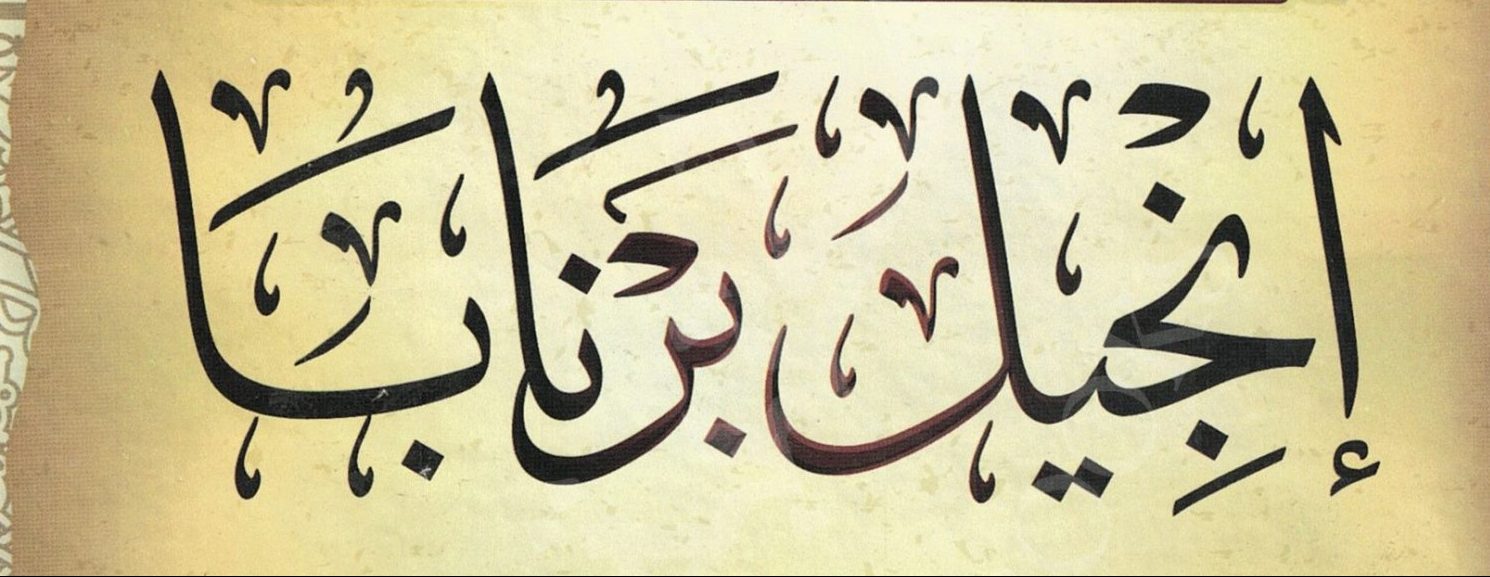 إنجِيل بَرْنَابَا